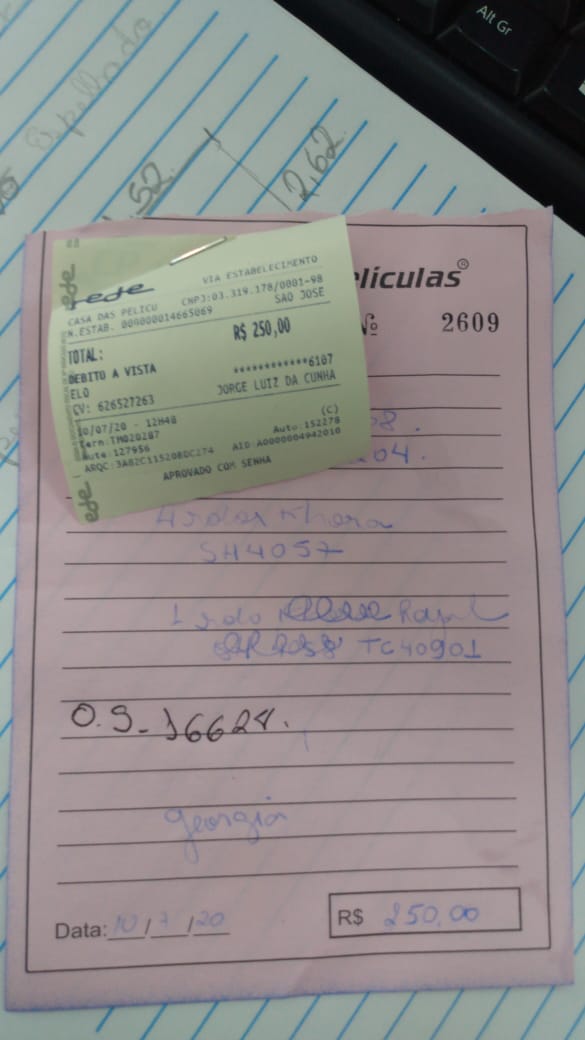 Alt Gr
2,62
,52
rede
VIA ESTABELECIMENTO
CASA DAS PELICU CNPJ:03.319.178/0001-98
N.ESTAB. 000000014665069 SAO JOSE
TOTAL: R$ 250,00
DEBITO A VISTA
ELO ************6107
CV: 626527263 JORGE LUIZ DA CUNHA
10/07/20 - 12H48 (C)
Term:TM020287 Auto:152278
Aute: 127956 AID:A0000004942010
ARQC:3A82C11520BDC274
APROVADO COM SENHA
elículas®
Nº 2609
08.
204.
SH4057
TC40901
O.S-16624.
Georgia
Data: 10/7/20
R$ 250,00